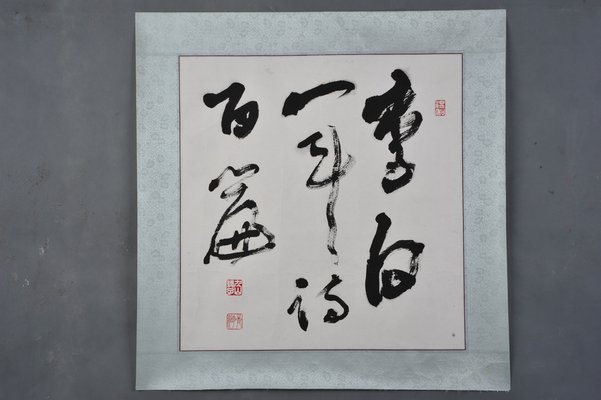 李白
一斗诗
百篇